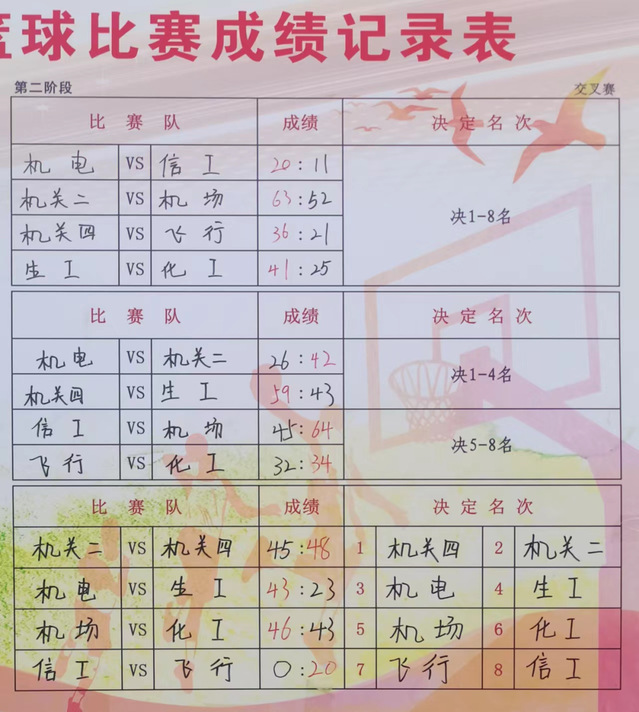 篮球比赛成绩记录表
第二阶段 交叉赛
比 赛 队 成绩 决 定 名 次
机 电 VS 信 工 20:11 决1-8名
机关二 VS 机 场 63:52
机关四 VS 飞 行 36:21
生 工 VS 化 工 41:25
比 赛 队 成绩 决 定 名 次
机 电 VS 机关二 26:42 决1-4名
机关四 VS 生 工 59:43
信 工 VS 机 场 45:64 决5-8名
飞 行 VS 化 工 32:34
比 赛 队 成绩 决 定 名 次
机关二 VS 机关四 45:48 1 机关四 2 机关二
机 电 VS 生 工 43:23 3 机 电 4 生 工
机 场 VS 化 工 46:43 5 机 场 6 化 工
信 工 VS 飞 行 0:20 7 飞 行 8 信 工